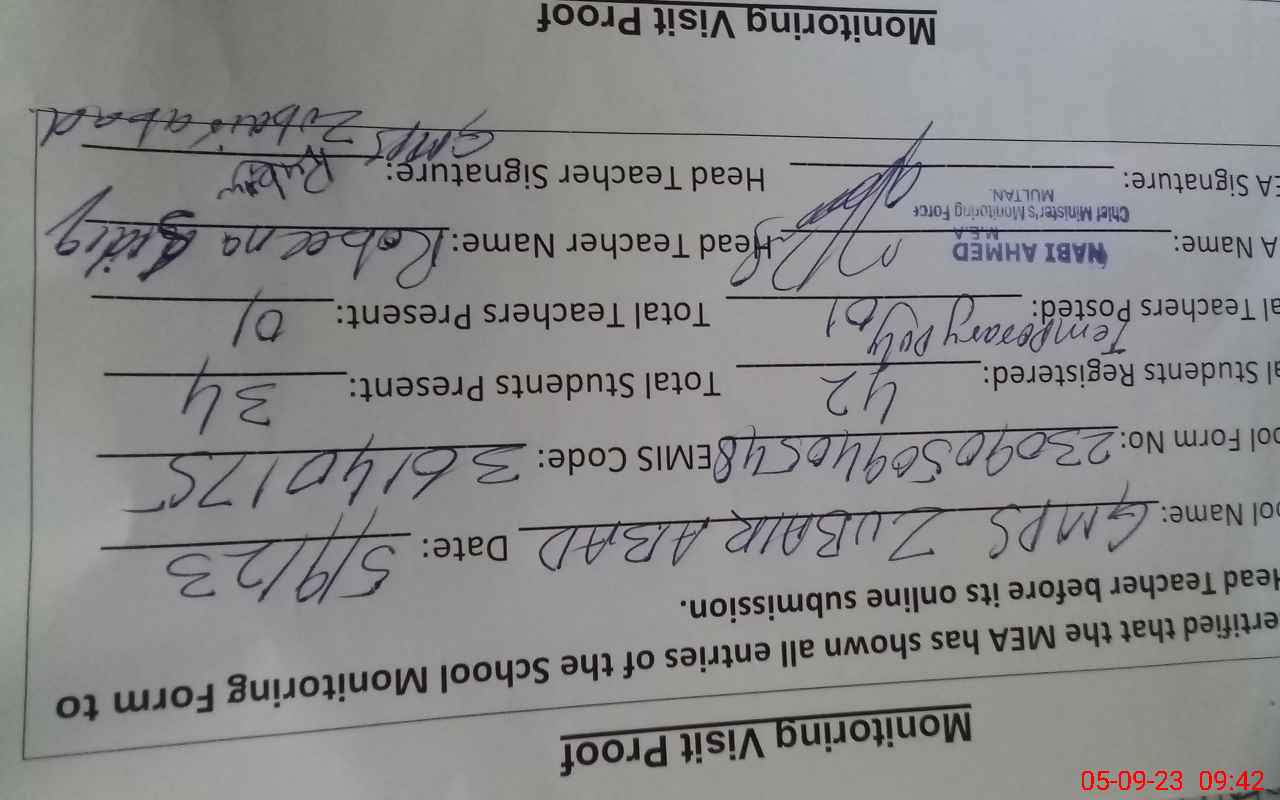 Monitoring Visit Proof
ertified that the MEA has shown all entries of the School Monitoring Form to
Head Teacher before its online submission.
ool Name: GMPS ZUBAIR ABAD Date: 5/9/23
ool Form No: 23090509440548 EMIS Code: 36140175
al Students Registered: 42 Total Students Present: 34
Temporary Duty
al Teachers Posted: 01 Total Teachers Present: 01
A Name: NABI AHMED Head Teacher Name: Robeena
M.E.A
Chief Minister's Monitoring Force
MULTAN.
EA Signature: Head Teacher Signature: Ruby
GMPS Zubair abad
Monitoring Visit Proof
05-09-23 09:42